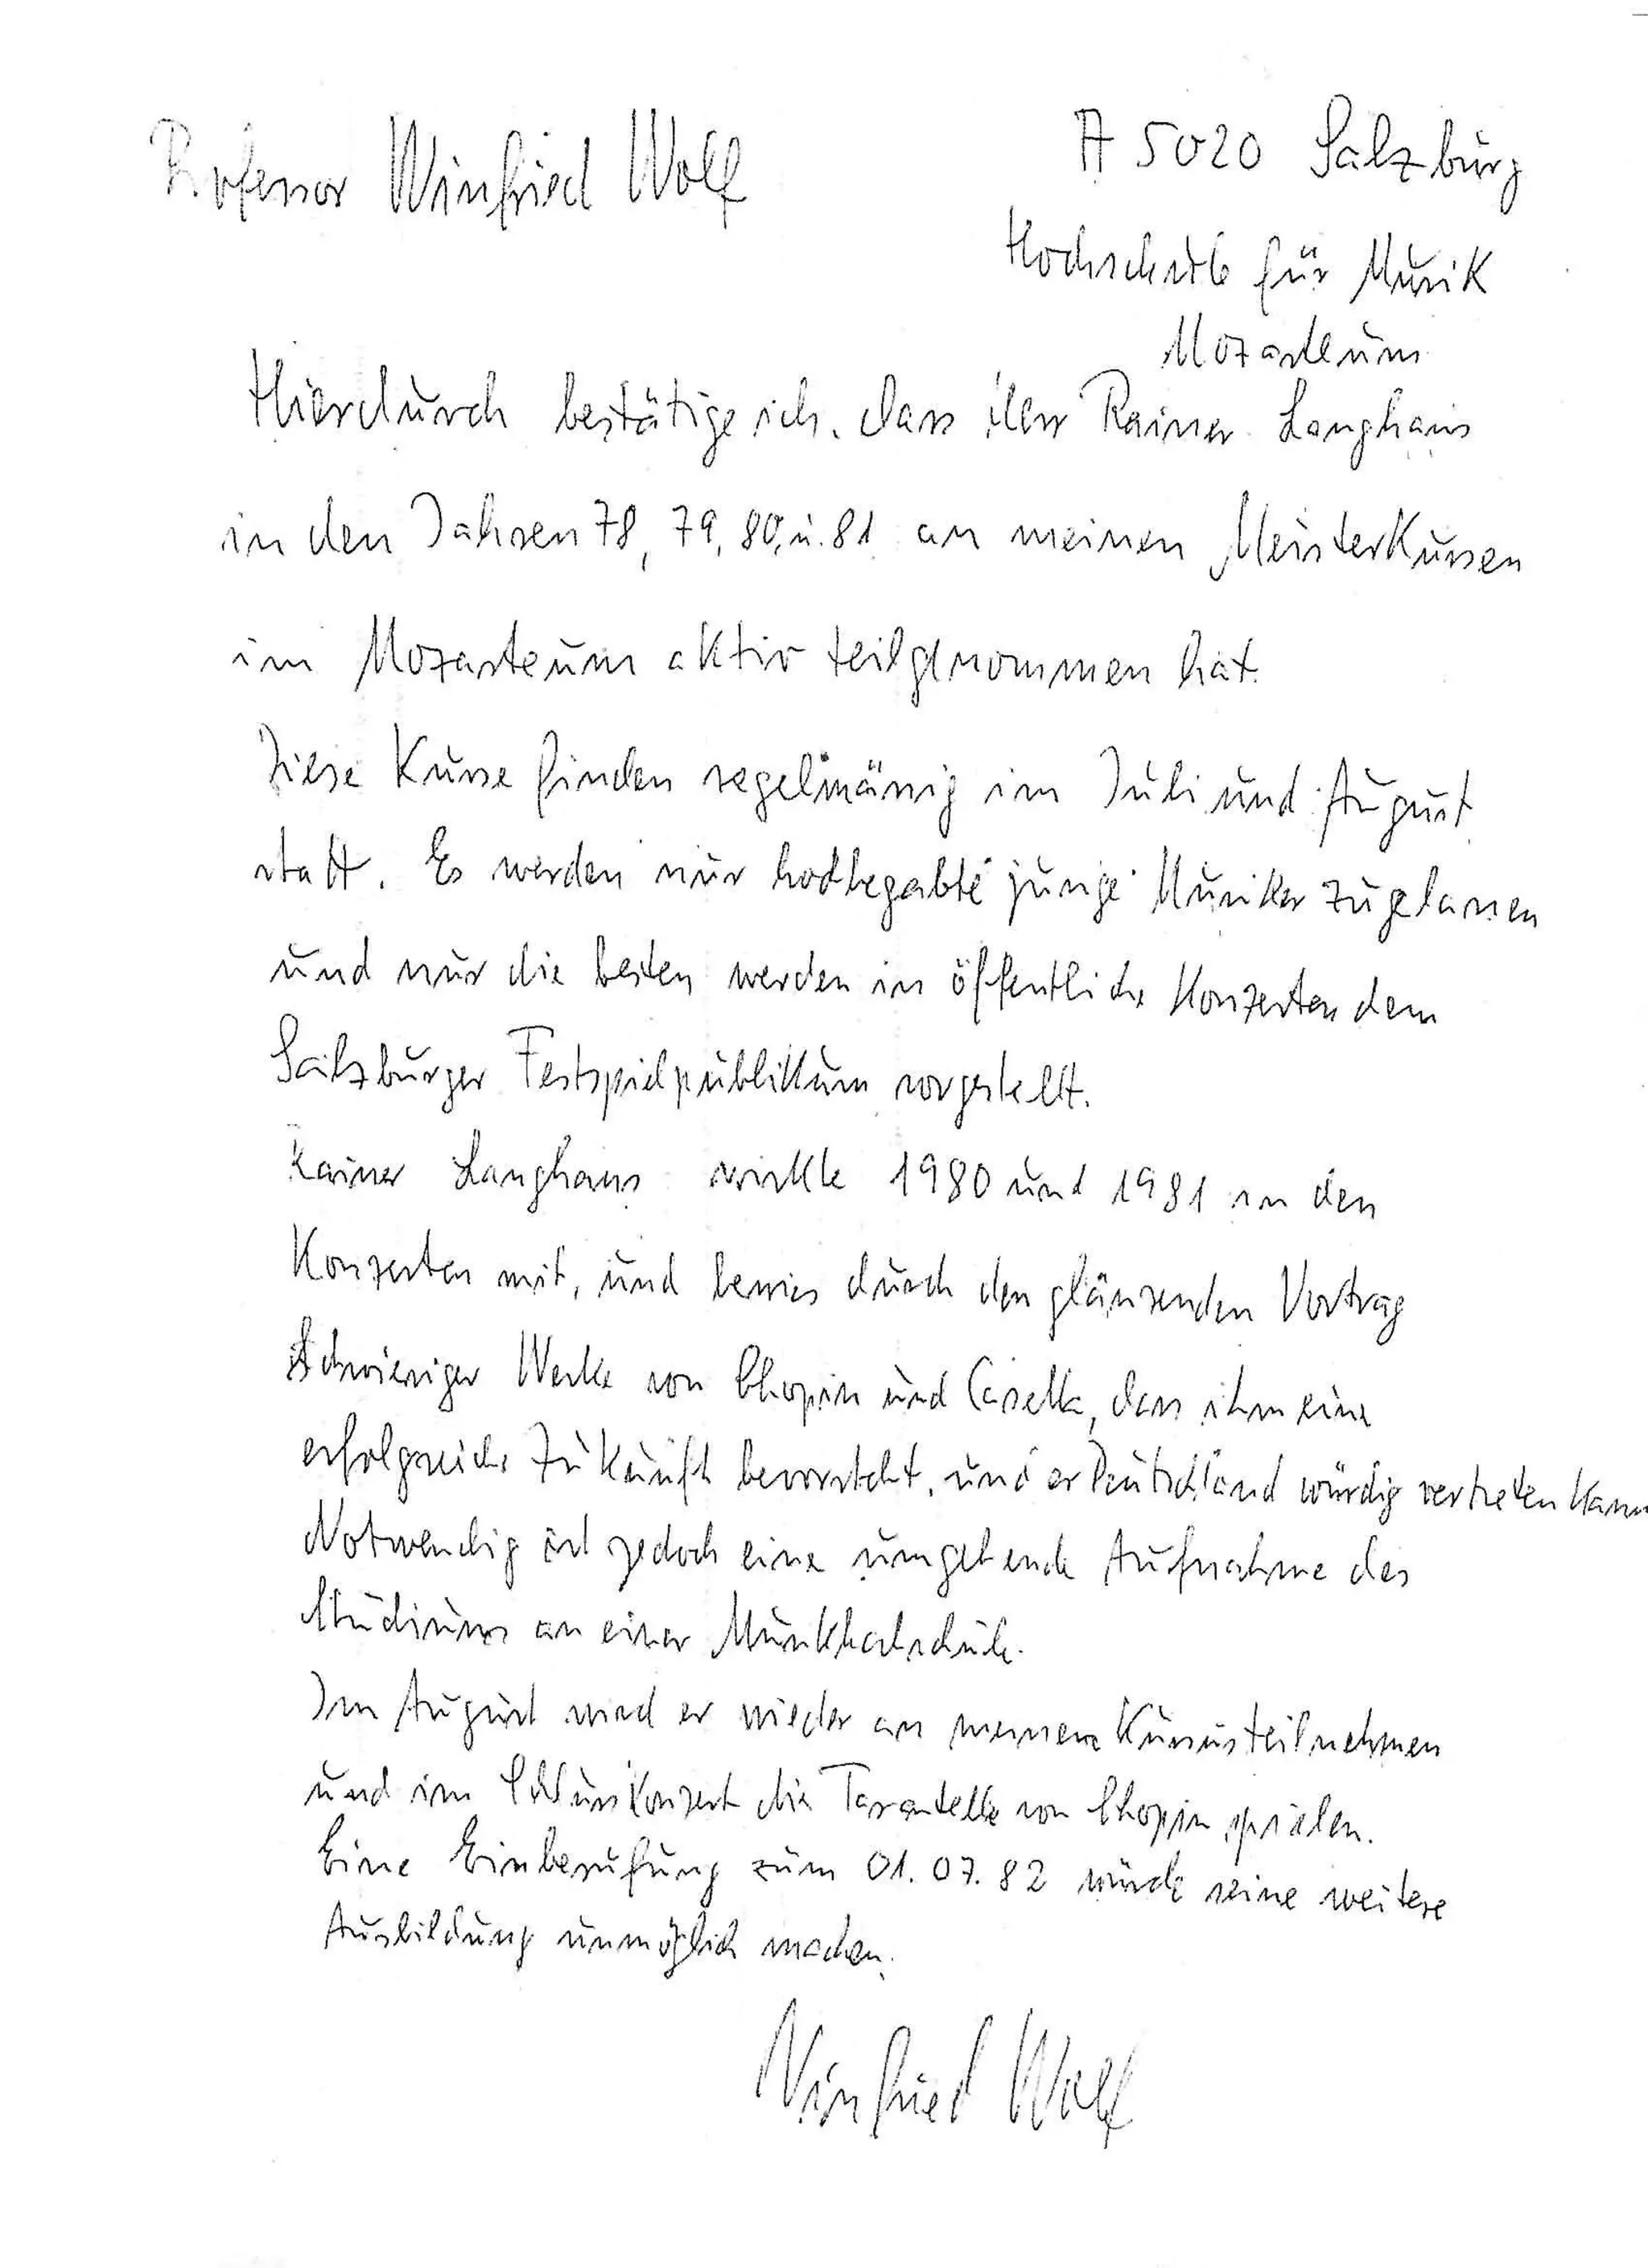 Professor Winfried Wolf
A 5020 Salzburg
Hochschule für Musik
Mozarteum
Hierdurch bestätige ich, dass Herr Rainer Langhans
in den Jahren 78, 79, 80, u. 81 an meinen Meisterkursen
im Mozarteum aktiv teilgenommen hat.
Diese Kurse finden regelmässig im Juli und August
statt. Es werden nur hochbegabte junge Musiker zugelassen
und nur die besten werden in öffentliche Konzerten dem
Salzburger Festspielpublikum vorgestellt.
Rainer Langhans wirkte 1980 und 1981 in den
Konzerten mit, und bewies durch den glänzenden Vortrag
schwieriger Werke von Chopin und Casella, dass ihm eine
erfolgreiche Zukunft bevorsteht, und er Deutschland würdig vertreten kann
Notwendig ist jedoch eine umgehende Aufnahme des
Studiums an einer Musikhochschule.
Im August wird er wieder an meinem Kursus teilnehmen
und im Schlusskonzert die Tarantelle von Chopin spielen.
Eine Einberufung zum 01.07.82 würde seine weitere
Ausbildung unmöglich machen.
Winfried Wolf